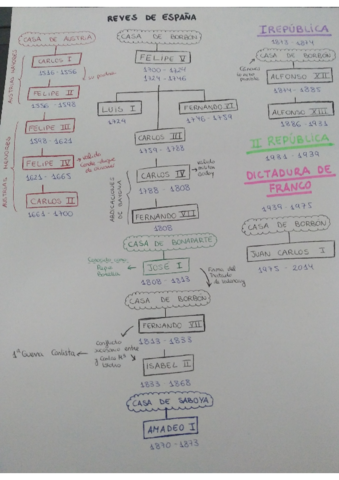 REYES DE ESPAÑA
CASA DE AUSTRIA
AUSTRIAS MAYORES
CARLOS I
1516 - 1556
FELIPE II
1556 - 1598
AUSTRIAS MENORES
FELIPE III
1598 - 1621
FELIPE IV
1621 - 1665
CARLOS II
1661 - 1700
CASA DE BORBÓN
FELIPE V
1700 - 1724
1724 - 1746
LUIS I
1724
FERNANDO VI
1746 - 1759
CARLOS III
1759 - 1788
CARLOS IV
1788 - 1808
ABDICACIONES DE BAYONA
FERNANDO VII
1808
CASA DE BONAPARTE
JOSÉ I
1808 - 1313
Firma del
Tratado
de Valençay
CASA DE BORBÓN
FERNANDO VII
1813 - 1833
1ª Guerra Carlista
Conflicto
entre
ISABEL II
1833 - 1868
CASA DE SABOYA
AMADEO I
1870 - 1873
I REPÚBLICA
1873 - 1874
CASA DE BORBÓN
ALFONSO XII
1874 - 1885
ALFONSO XIII
1886 - 1931
II REPÚBLICA
1931 - 1939
DICTADURA DE
FRANCO
1939 - 1975
CASA DE BORBÓN
JUAN CARLOS I
1975 - 2014